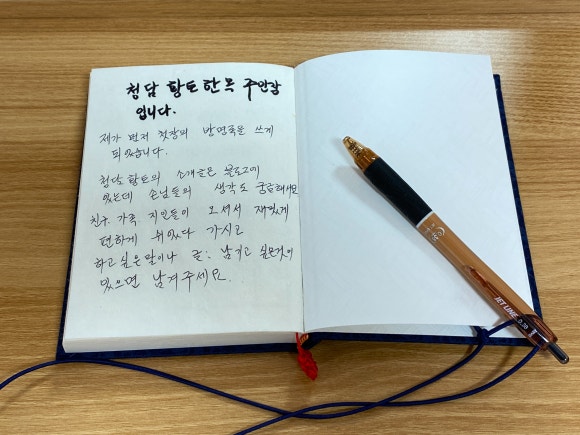 청담 황토한옥 주인장
입니다.
제가 먼저 첫장의 방명록을 쓰게
되었습니다.
청담 황토의 소개글은 블로그에
있는데 손님들의 생각도 궁금해서요
친구. 가족 지인들이 오셔서 재밌게
편하게 쉬었다 가시고
하고 싶은 말이나 글. 남기고 싶은것이
있으면 남겨주세요.
JET LINE 0.38